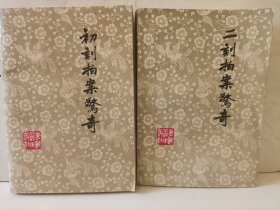 初刻拍案驚奇
二刻拍案驚奇